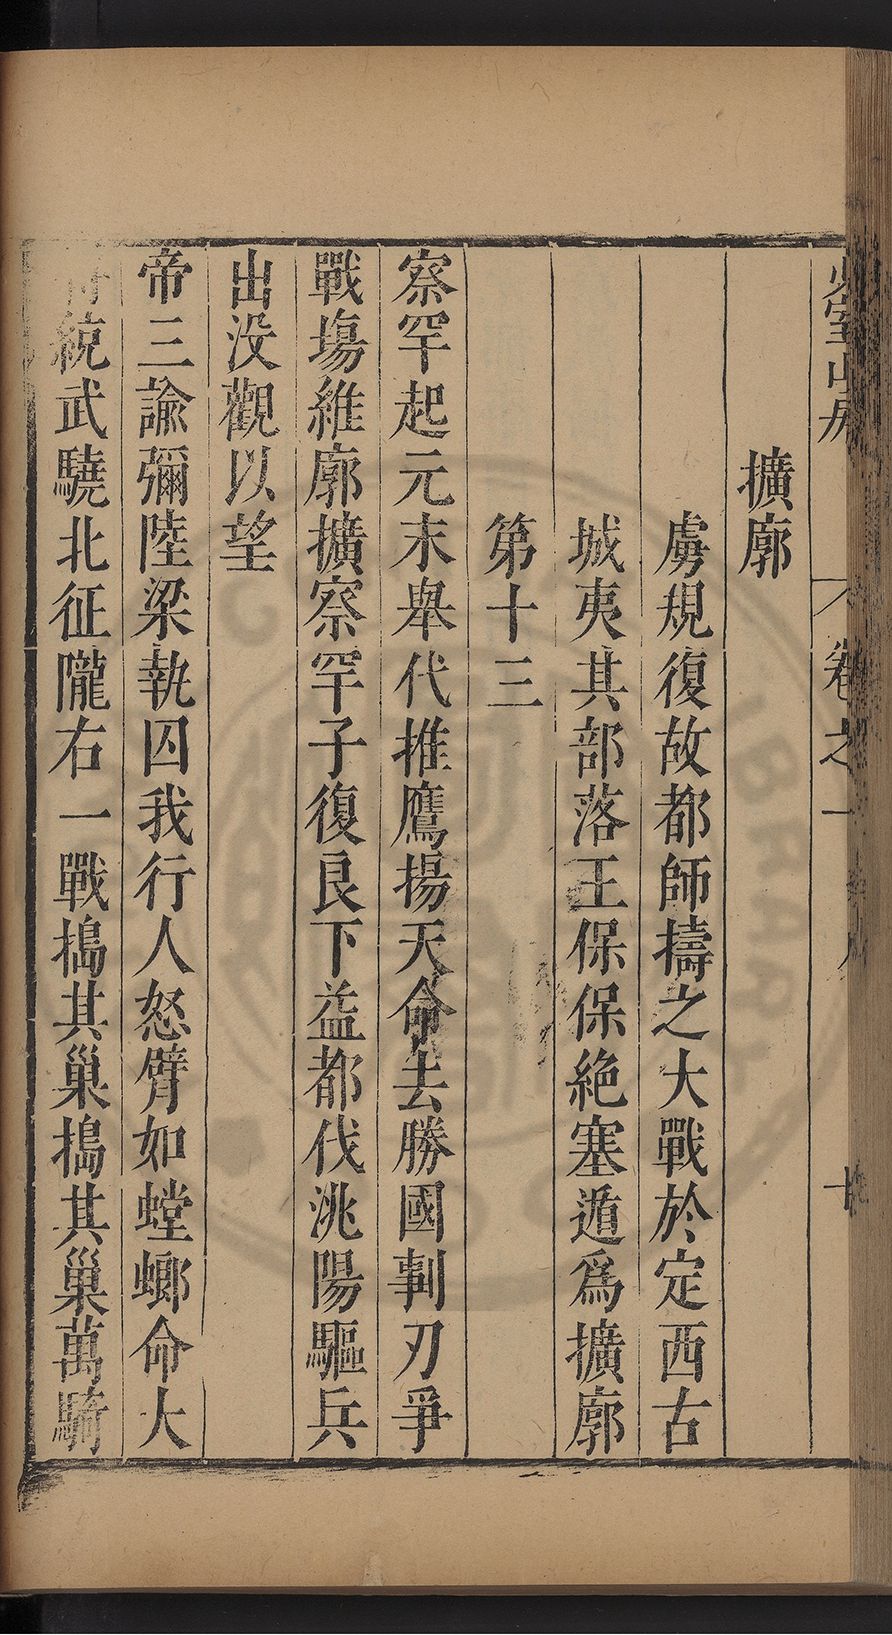 少室山房
卷之一
十
擴廓
虜規復故都師擣之大戰於定西古
城夷其部落王保保絶塞遁爲擴廓
第十三
察罕起元末舉代推鷹揚天命去勝國剚刃爭
戰塲維廓擴察罕子復良下益都伐洮陽驅兵
出没觀以望
帝三諭彌陸梁執囚我行人怒臂如螳螂命大
將統武驍北征隴右一戰搗其巢搗其巢萬騎